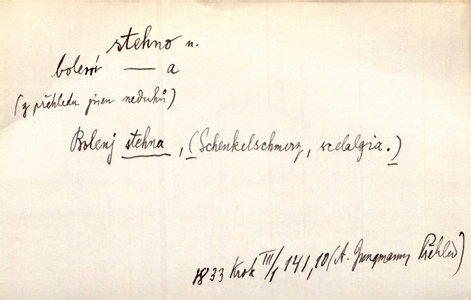 stehno n.
bolení — a
(z přehledu jmen neduhů)
Bolenj stehna, (Schenkelschmerz, scelalgia.)
1833 Krok III/1 141, 10 (A. Jungmann, Přehled)